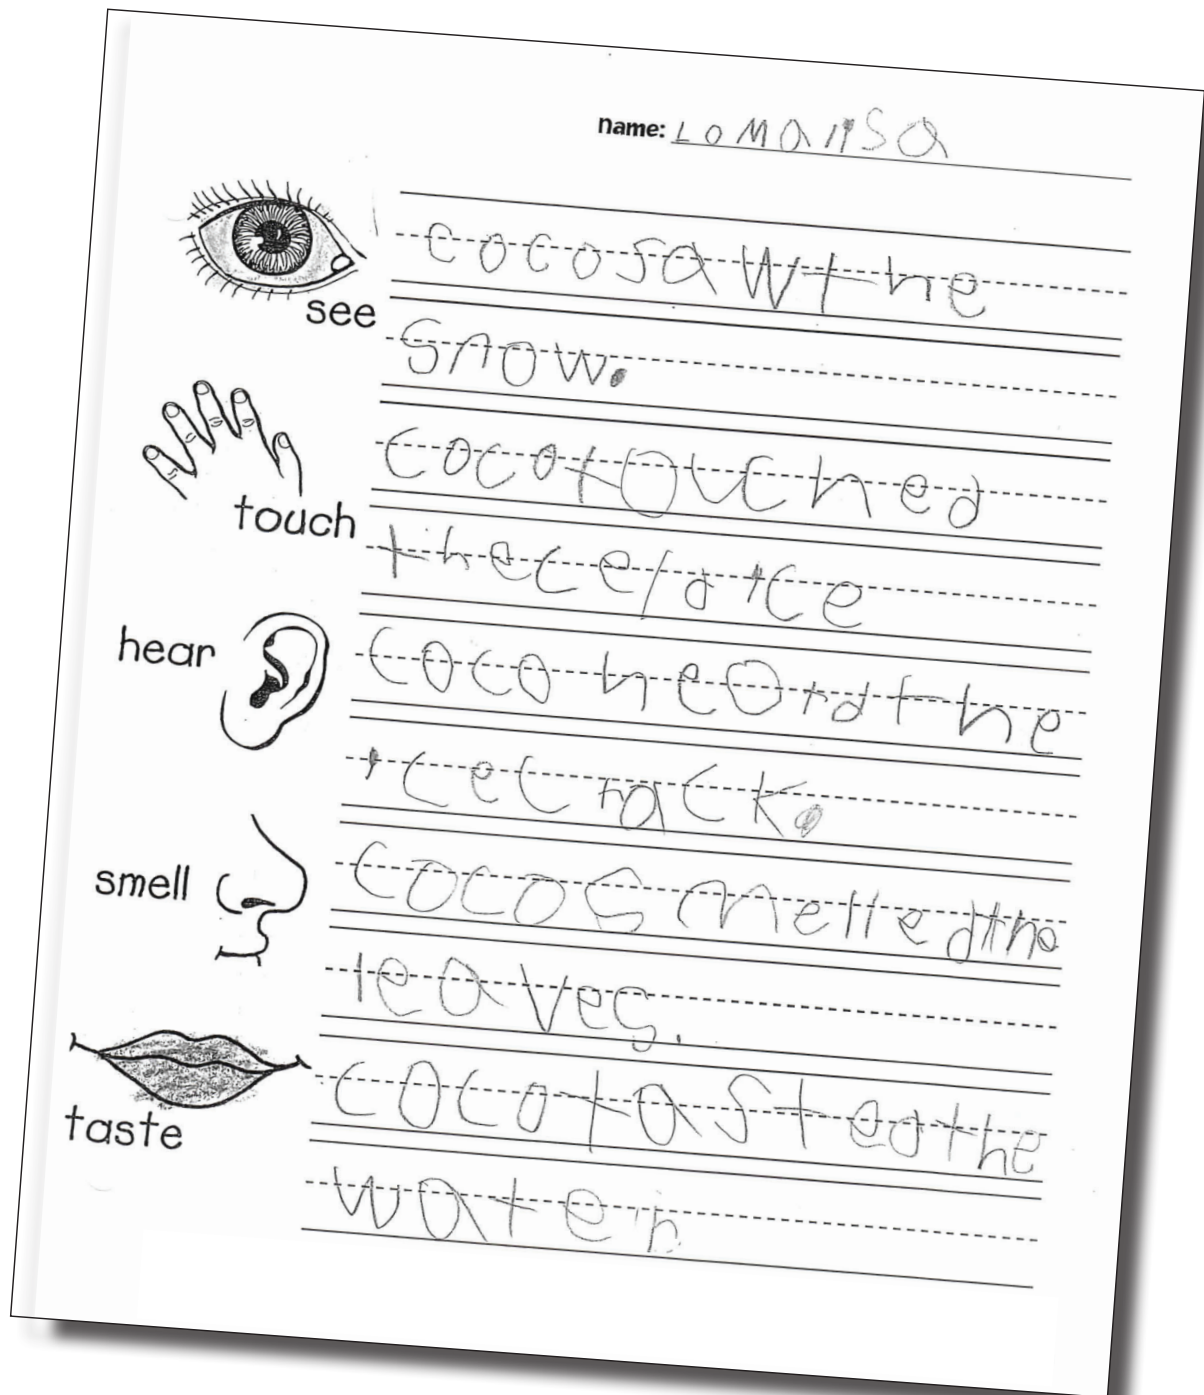 Name: LOMANSA
see
cocosawthe
snow.
touch
cocotouched
theceldice
hear
coco heordthe
icecrack.
smell
cocosmelledthe
leaves.
taste
cocotastedthe
water.